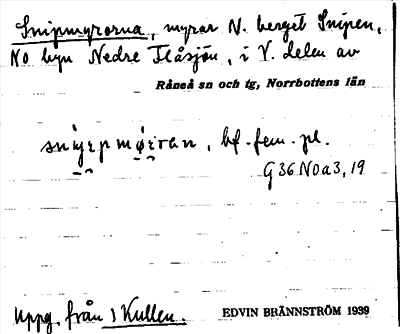 Snipmyrorna, myrar N. berget Snipen,
NO byn Nedre Flåsjön, i V. delen av
Råneå sn och tg, Norrbottens län
bf. fem. pl.
G36NOa3,19
Uppg. från 1 Kullen. EDVIN BRÄNNSTRÖM 1939